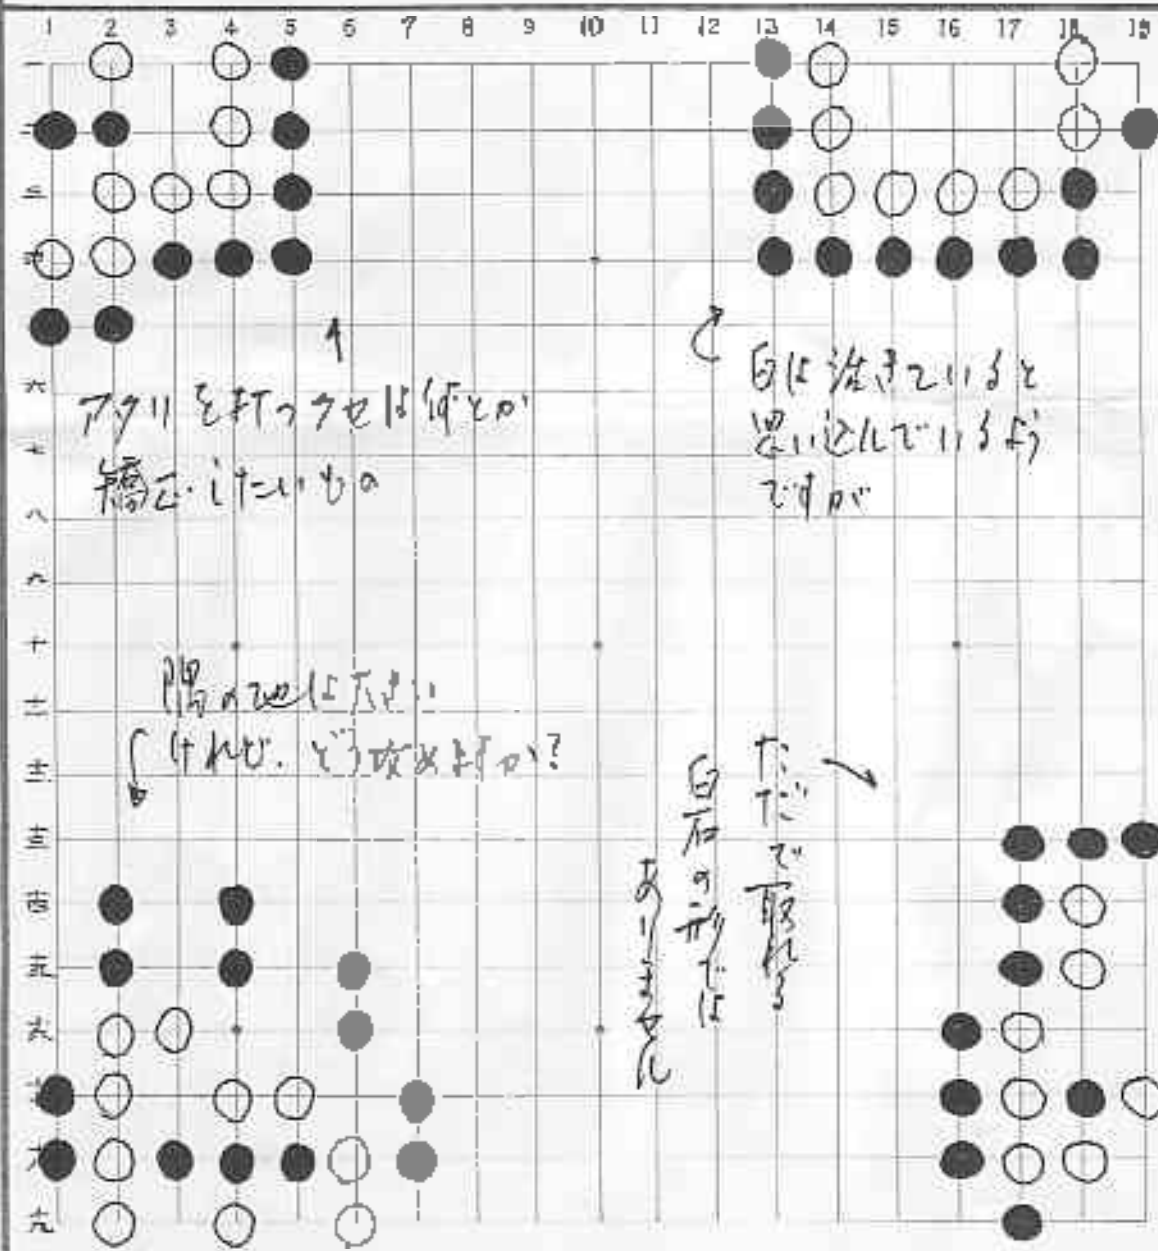 1 2 3 4 5 6 7 8 9 10 11 12 13 14 15 16 17 18 19
一
二
三
四
六
七
八
九
十
十一
十二
十三
十四
十五
十六
十七
十八
十九
アタリを打つクセは何とか
矯正したいもの
白は活きていると
思い込んでいるよう
ですが
隅の地は大きい
けれど、どう攻めますか?
ただで取れる
白石の形では
ありません